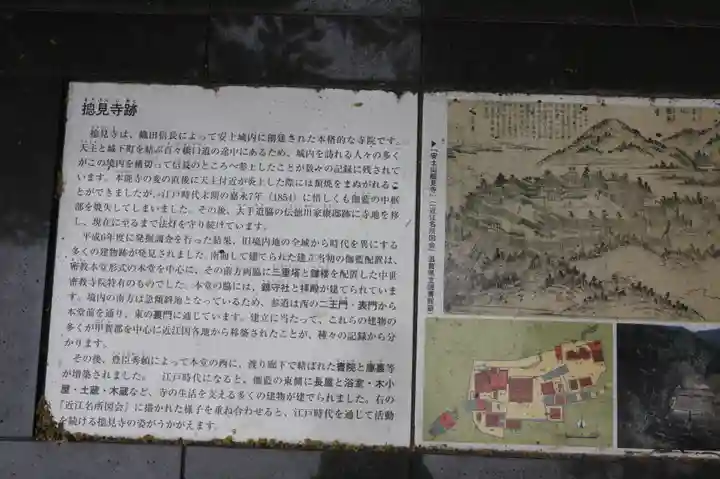 摠見寺跡
摠見寺は、織田信長によって安土城内に創建された本格的な寺院です。
天主と城下町を結ぶ百々橋口道の途中にあるため、城内を訪れる人々の多く
がこの境内を横切って信長のところへ参上したことが数々の記録に残されて
います。本能寺の変の直後に天主付近が炎上した際には類焼をまぬがれるこ
とができましたが、江戸時代末期の嘉永7年(1854)に惜しくも伽藍の中枢
部を焼失してしまいました。その後、大手道脇の伝徳川家康邸跡に寺地を移
し、現在に至るまで法灯を守り続けています。
平成6年度に発掘調査を行った結果、旧境内地の全域から時代を異にする
多くの建物跡が発見されました。南面して建てられた建立当初の伽藍配置は、
密教本堂形式の本堂を中心に、その前方両脇に三重塔と鐘楼を配置した中世
密教寺院特有のものでした。本堂の脇には、鎮守社と拝殿が建てられていま
す。境内の南方は急傾斜地となっているため、参道は西の二王門・表門から
本堂前を通り、東の裏門に通じています。建立に当たって、これらの建物の
多くが甲賀郡を中心に近江国各地から移築されたことが、種々の記録から分
かります。
その後、豊臣秀頼によって本堂の西に、渡り廊下で結ばれた書院と庫裏等
が増築されました。 江戸時代になると、伽藍の東側に長屋と浴室・木小
屋・土蔵・木蔵など、寺の生活を支える多くの建物が建てられました。右の
『近江名所図会』に描かれた様子を重ね合わせると、江戸時代を通じて活動
を続ける摠見寺の姿がうかがえます。
▶「安土山摠見寺」(『近江名所図会』滋賀県立図書館蔵)